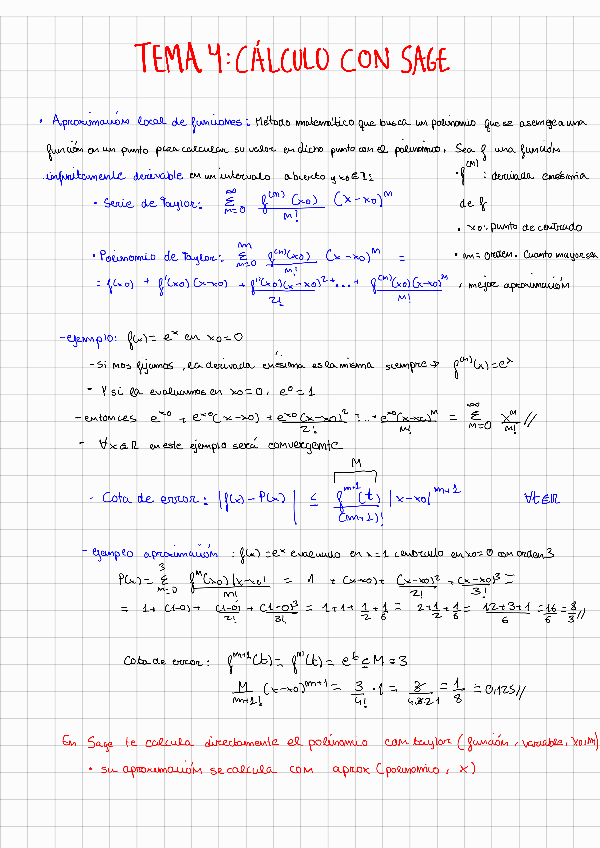 TEMA 4: CÁLCULO CON SAGE
• Aproximación local de funciones: Método matemático que busca un polinomio que se asemeje a una
función en un punto para calcular su valor en dicho punto con el polinomio. Sea f una función
infinitamente derivable en un intervalo abierto y x0 ∈ I:
• f^(n): derivada enésima
de f
• Serie de Taylor: ∞ Σ n=0 f^(n)(x0) / n! (x-x0)^n
• x0: punto de centrado
• Polinomio de Taylor: n Σ n=0 f^(n)(x0) / n! (x-x0)^n =
• n = orden. Cuanto mayor sea
, mejor aproximación
= f(x0) + f'(x0)(x-x0) + f''(x0)(x-x0)^2 / 2! + ... + f^(n)(x0)(x-x0)^n / n!
- ejemplo: f(x) = e^x en x0=0
- Si nos fijamos, la derivada enésima es la misma siempre → f^(n)(x) = e^x
- Y si la evaluamos en x0=0, e^0=1
- entonces e^x0 + e^x0(x-x0) + e^x0(x-x0)^2 / 2! + ... + e^x0(x-x0)^n / n! = ∞ Σ n=0 x^n / n! //
- ∀x∈ℝ en este ejemplo será convergente
M
- Cota de error: |f(x) - P(x)| ≤ f^n+1(t) / (n+1)! |x-x0|^n+1 ∀t∈ℝ
- ejemplo aproximación: f(x) = e^x evaluado en x=1 centrado en x0=0 con orden 3
P(x) = 3 Σ n=0 f^n(x0)|x-x0| / n! = 1 + (x-x0) + (x-x0)^2 / 2! + (x-x0)^3 / 3! =
= 1 + (1-0) + (1-0) / 2! + (1-0)^3 / 3! = 1+1+1/2+1/6 = 2+1/2+1/6 = 12+3+1 / 6 = 16/6 = 8/3 //
Cota de error: f^n+1(t) = f^iv(t) = e^t ≤ M = 3
M / n+1! (x-x0)^n+1 = 3/4! · 1 = 3 / 4·3·2·1 = 1/8 = 0,125 //
En Sage te calcula directamente el polinomio con taylor (función, variable, x0, n)
• su aproximación se calcula con aprox (polinomio, x)